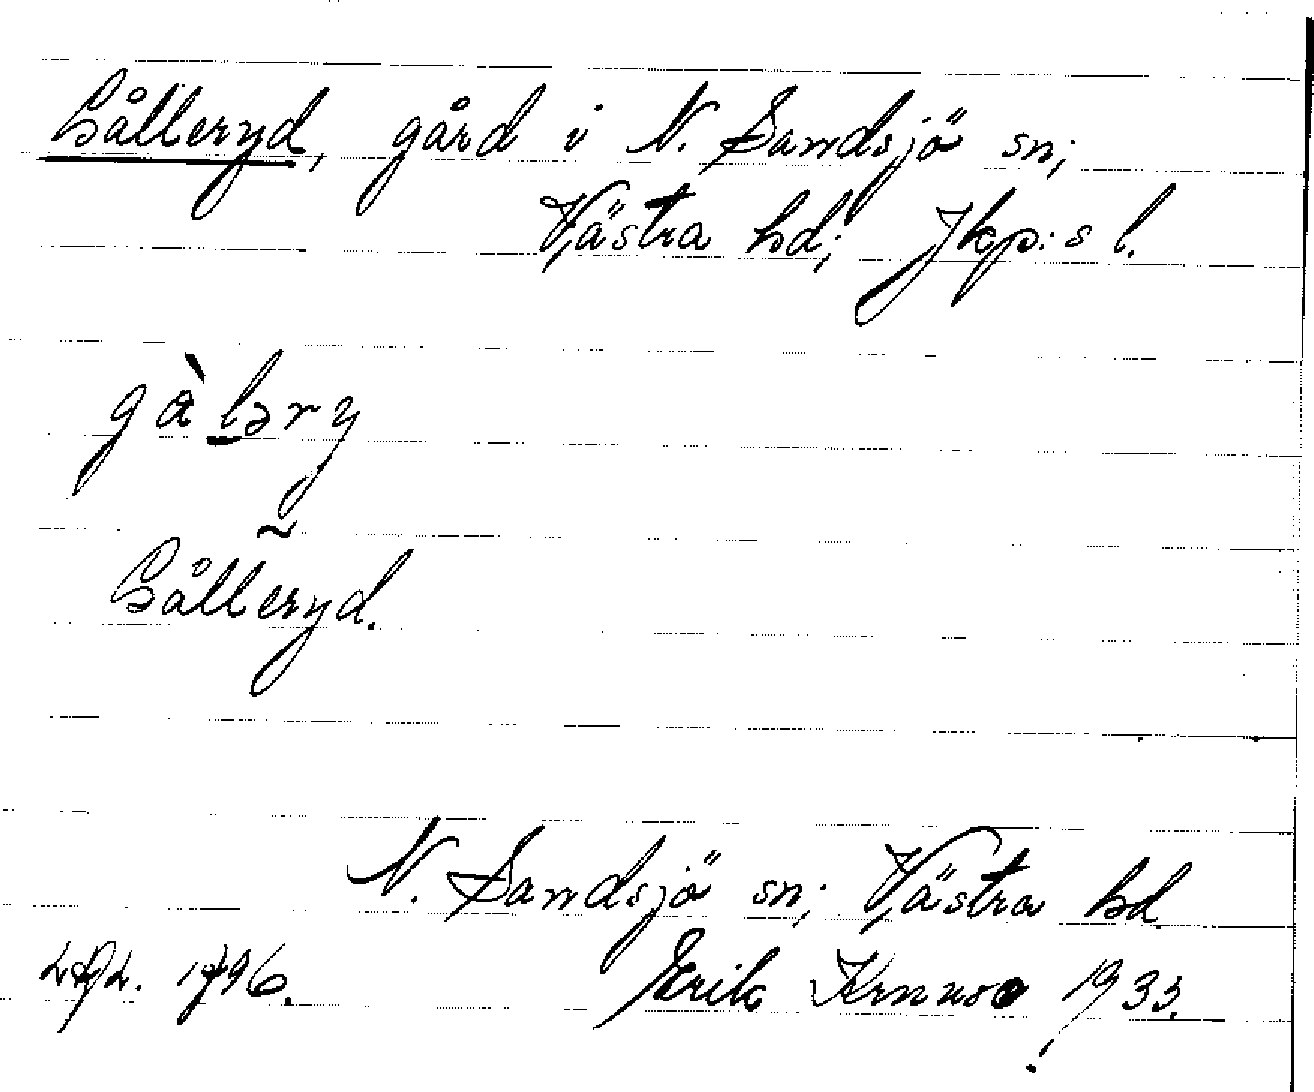 Gålleryd, gård i N. Sandsjö sn;
Västra hd; Jkp:s l.
gàləry
Gålleryd.
N. Sandsjö sn; Västra hd
1796. Erik 1933.